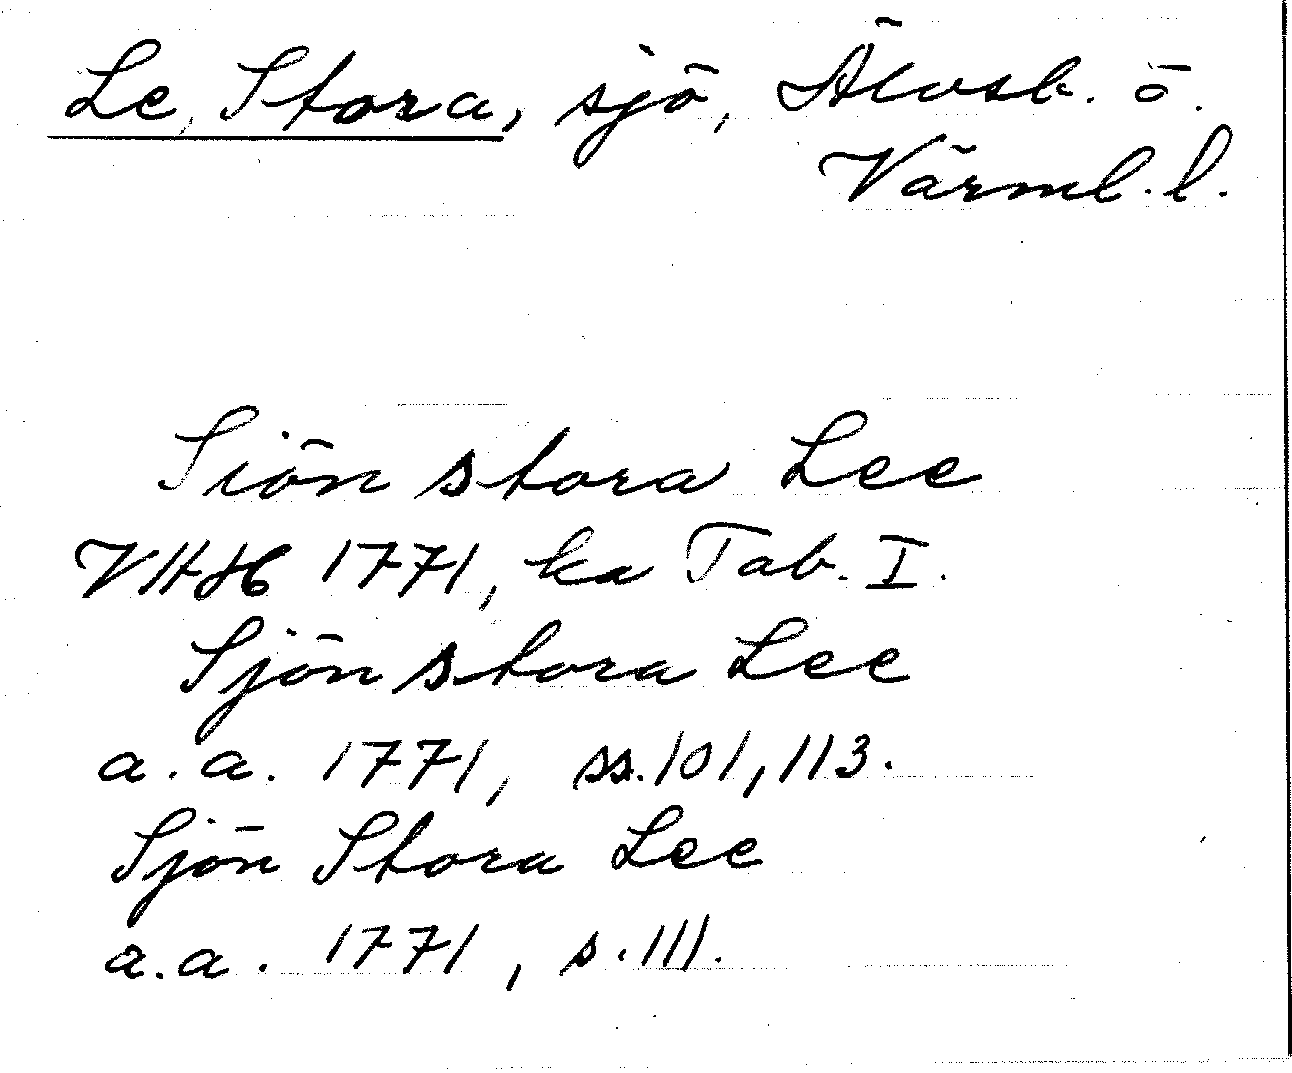 Le, Stora, sjö, Älvsb. ö.
Värml. l.
Siön stora Lee
VHH 1771, ka Tab. I.
Sjön stora Lee
a. a. 1771, ss. 101, 113.
Sjön Stora Lee
a. a. 1771, s. 111.